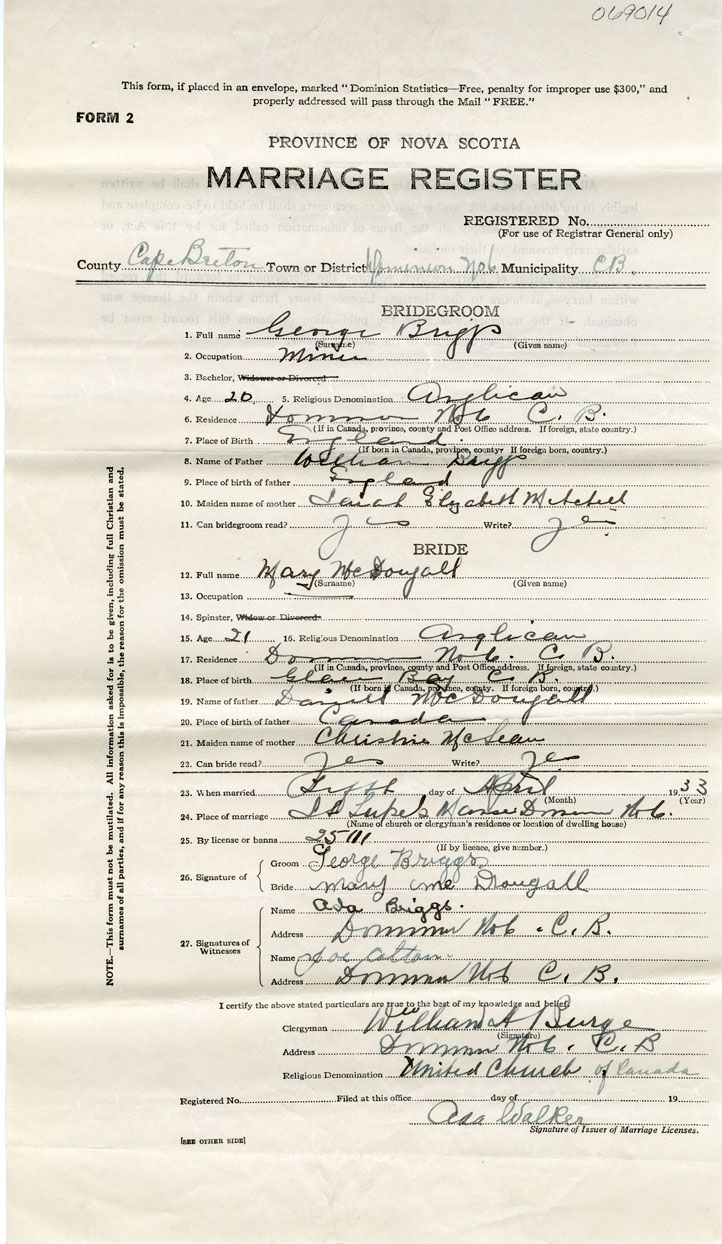 069014
This form, if placed in an envelope, marked "Dominion Statistics—Free, penalty for improper use $300," and
properly addressed will pass through the Mail "FREE."
FORM 2
PROVINCE OF NOVA SCOTIA
MARRIAGE REGISTER
REGISTERED No.
(For use of Registrar General only)
County Cape Breton Town or District Dominion No 6 Municipality C.B.
BRIDEGROOM
1. Full name George Briggs
(Surname) (Given name)
2. Occupation Miner
3. Bachelor, Widower or Divorced
4. Age 20 5. Religious Denomination Anglican
6. Residence Dominion No 6 C. B.
(If in Canada, province, county and Post Office address. If foreign, state country.)
7. Place of Birth England
(If born in Canada, province, county? If foreign born, country.)
8. Name of Father William Briggs
9. Place of birth of father England
10. Maiden name of mother Sarah Elizabeth Mitchell
11. Can bridegroom read? yes Write? yes
BRIDE
12. Full name Mary McDougall
(Surname) (Given name)
13. Occupation
14. Spinster, Widow or Divorced
15. Age 21 16. Religious Denomination Anglican
17. Residence Dominion No 6. C. B.
(If in Canada, province, county and Post Office address. If foreign, state country.)
18. Place of birth Glace Bay C. B.
(If born in Canada, province, county. If foreign born, country.)
19. Name of father Daniel McDougall
20. Place of birth of father Canada
21. Maiden name of mother Christie McLean
22. Can bride read? yes Write? yes
23. When married day of April 1933
(Month) (Year)
24. Place of marriage St Luke's Manse Dominion No 6.
(Name of church or clergyman's residence or location of dwelling house)
25. By license or banns 25111
(If by licence, give number.)
26. Signature of
Groom George Briggs
Bride Mary Mc Dougall
27. Signatures of Witnesses
Name Ada Briggs.
Address Dominion No 6. C. B.
Name Joe
Address Dominion No 6 C. B.
I certify the above stated particulars are true to the best of my knowledge and belief.
Clergyman William A Burge
(Signature)
Address Dominion No 6. C. B
Religious Denomination United Church of Canada
Registered No. Filed at this office day of 19
Ada Walker
Signature of Issuer of Marriage Licenses.
[SEE OTHER SIDE]
NOTE.—This form must not be mutilated. All information asked for is to be given, including full Christian and
surnames of all parties, and if for any reason this is impossible, the reason for the omission must be stated.